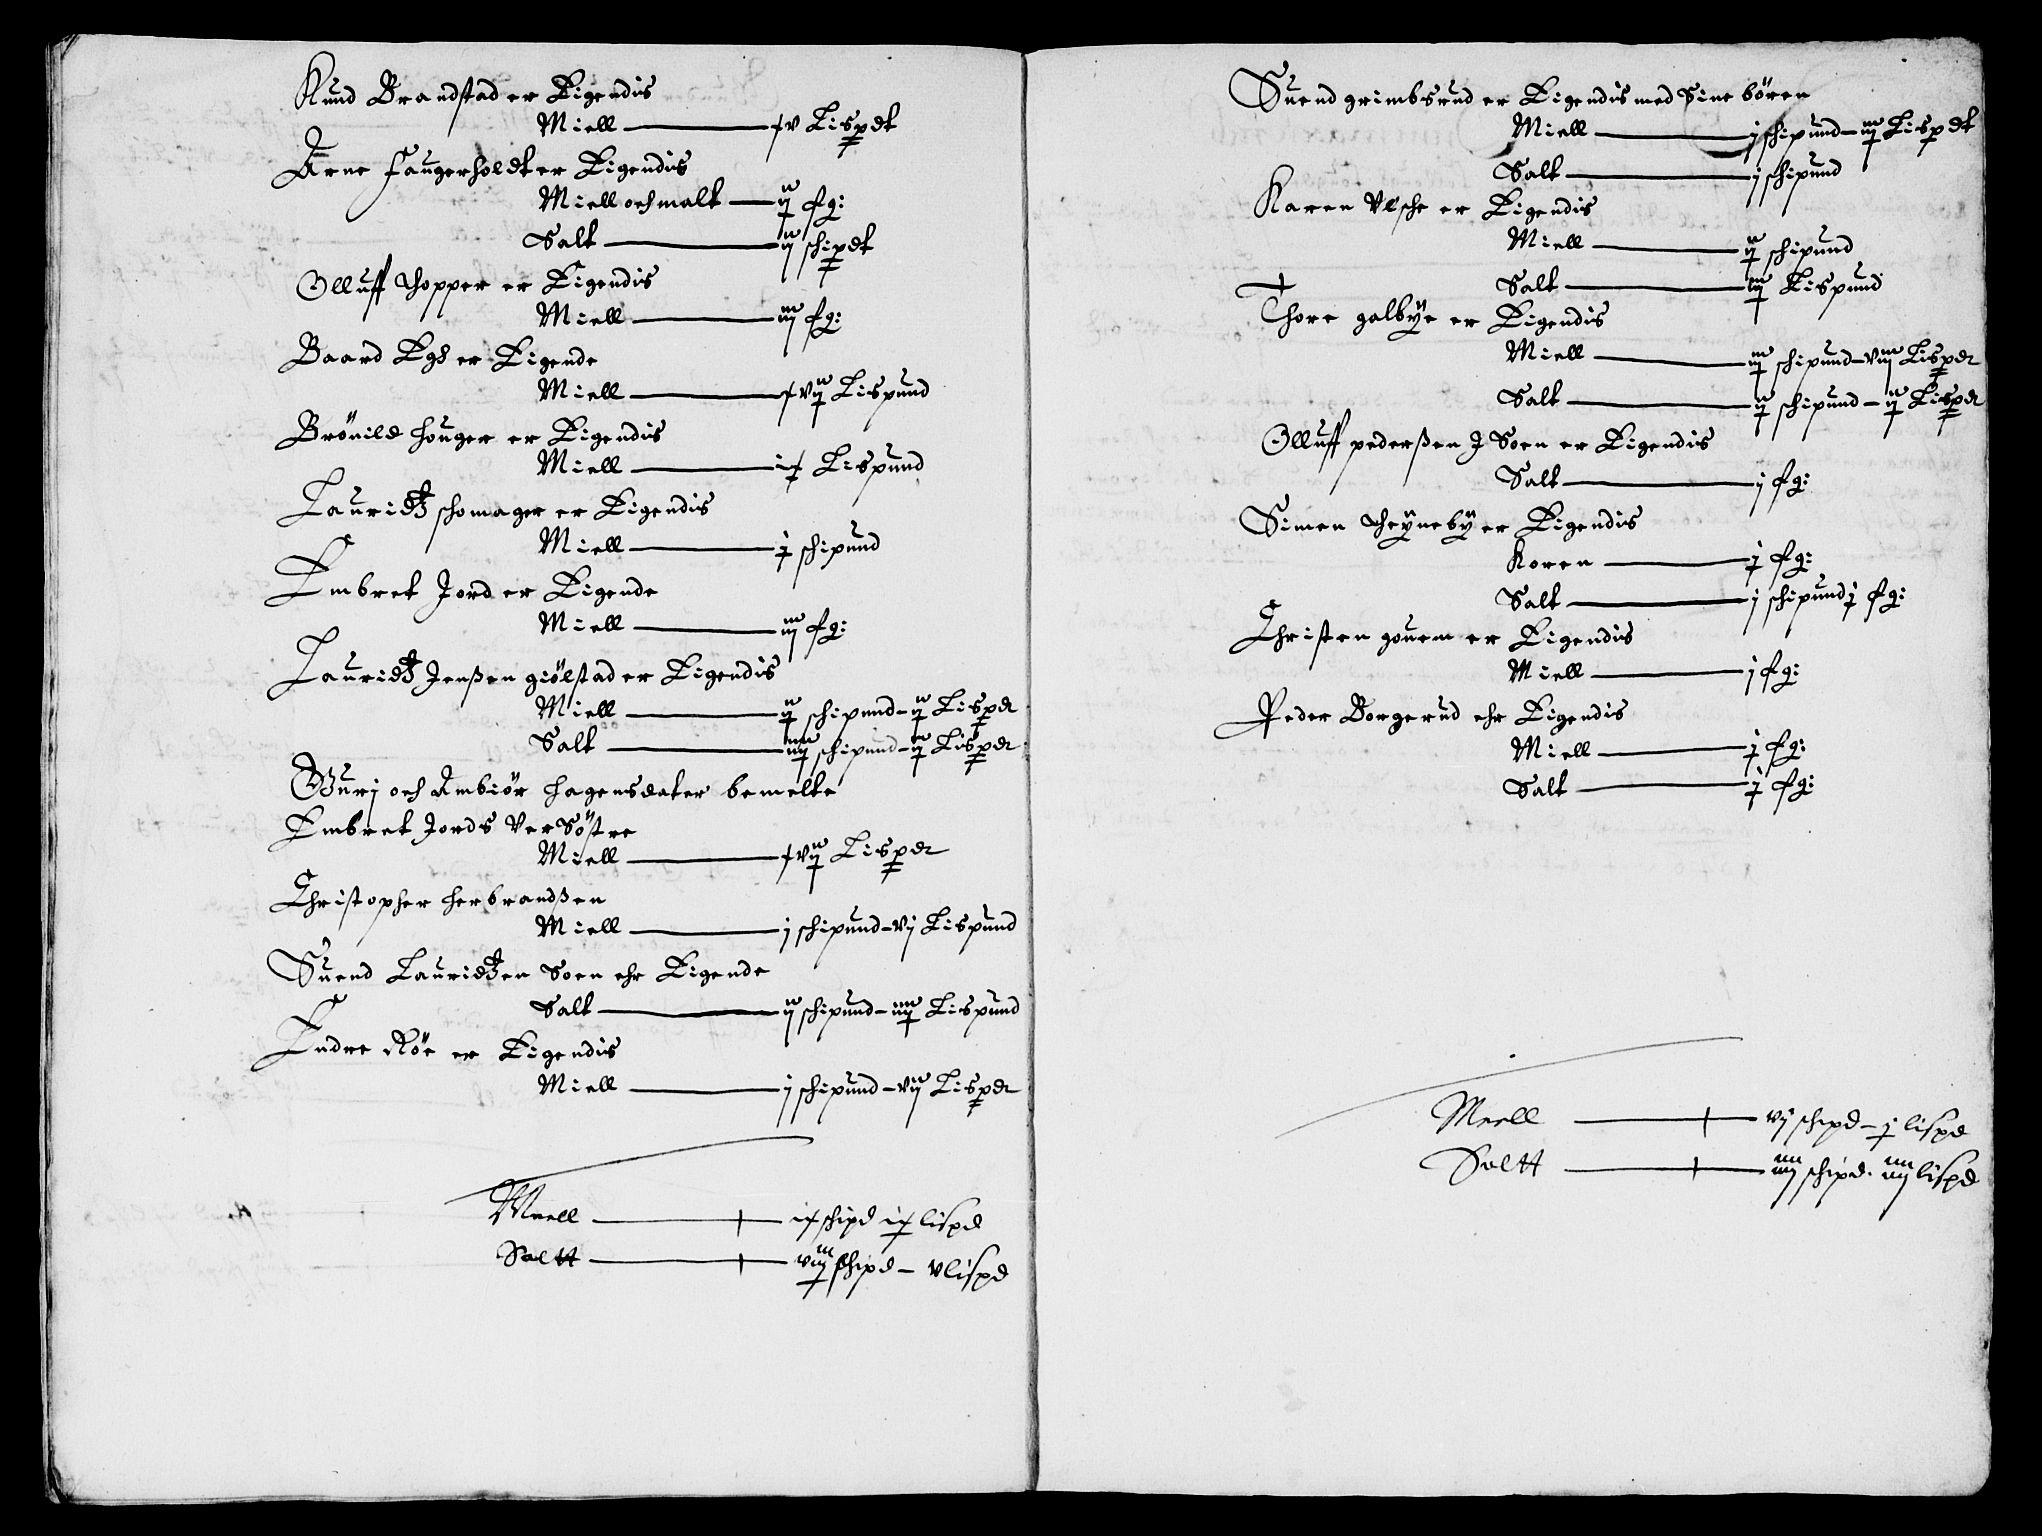 Knud Brandstad er Eigendis
Miell — xv Lispdt
Arne Faugerholdt er Eigendis
Miell och malt — ij fg:
Salt — iij schipdt
Olluff Hopper er Eigendis
Miell — iij fg:
Baard Egh er Eigende
Miell — xvij Lispund
Brönild Houger er Eigendis
Miell — ix Lispund
Lauridtz schomager er Eigendis
Miell — j schipund
Embret Jord er Eigende
Miell — iij fg:
Lauridtz Jenßen giölstad er Eigendis
Miell — ij schipund - ij Lispdt
Salt — iiij schipund - ij Lispdt
Gurj och Ambiör Hagensdater bemelte
Embret Jords Ver Söstre
Miell — xvij Lispdt
Christopher Herbrandßen
Miell — j schipund - vj Lispund
Suend Lauridtzen Soen ehr Eigende
Salt — ij schipund - iiij Lispund
Endre Röe er Eigendis
Miell — j schipund - vij Lispdt
Meell — ix schipd ix lispd
Saltt — viij schipd - v lispd
Suend grimbsrud er Eigendis med Sine bören
Miell — j schipund - iij Lispdt
Salt — j schipund
Karen Vlsche er Eigendis
Miell — ij schipund
Salt — iij Lispund
Thore galbÿe er Eigendis
Miell — iij schipund - viij Lispdt
Salt — ij schipund - ij Lispdt
Olluff pederßen J Soen er Eigendis
Salt — j fg:
Simen Heÿnebÿ er Eigendis
Koren — j fg:
Salt — j schipund j fg:
Christen gouem er Eigendis
Miell — j fg:
Peder Borgerud ehr Eigendis
Miell — j fg:
Salt — j fg:
Meell — vj schipd - j lispd
Saltt — iiij schipd. iiij lispd